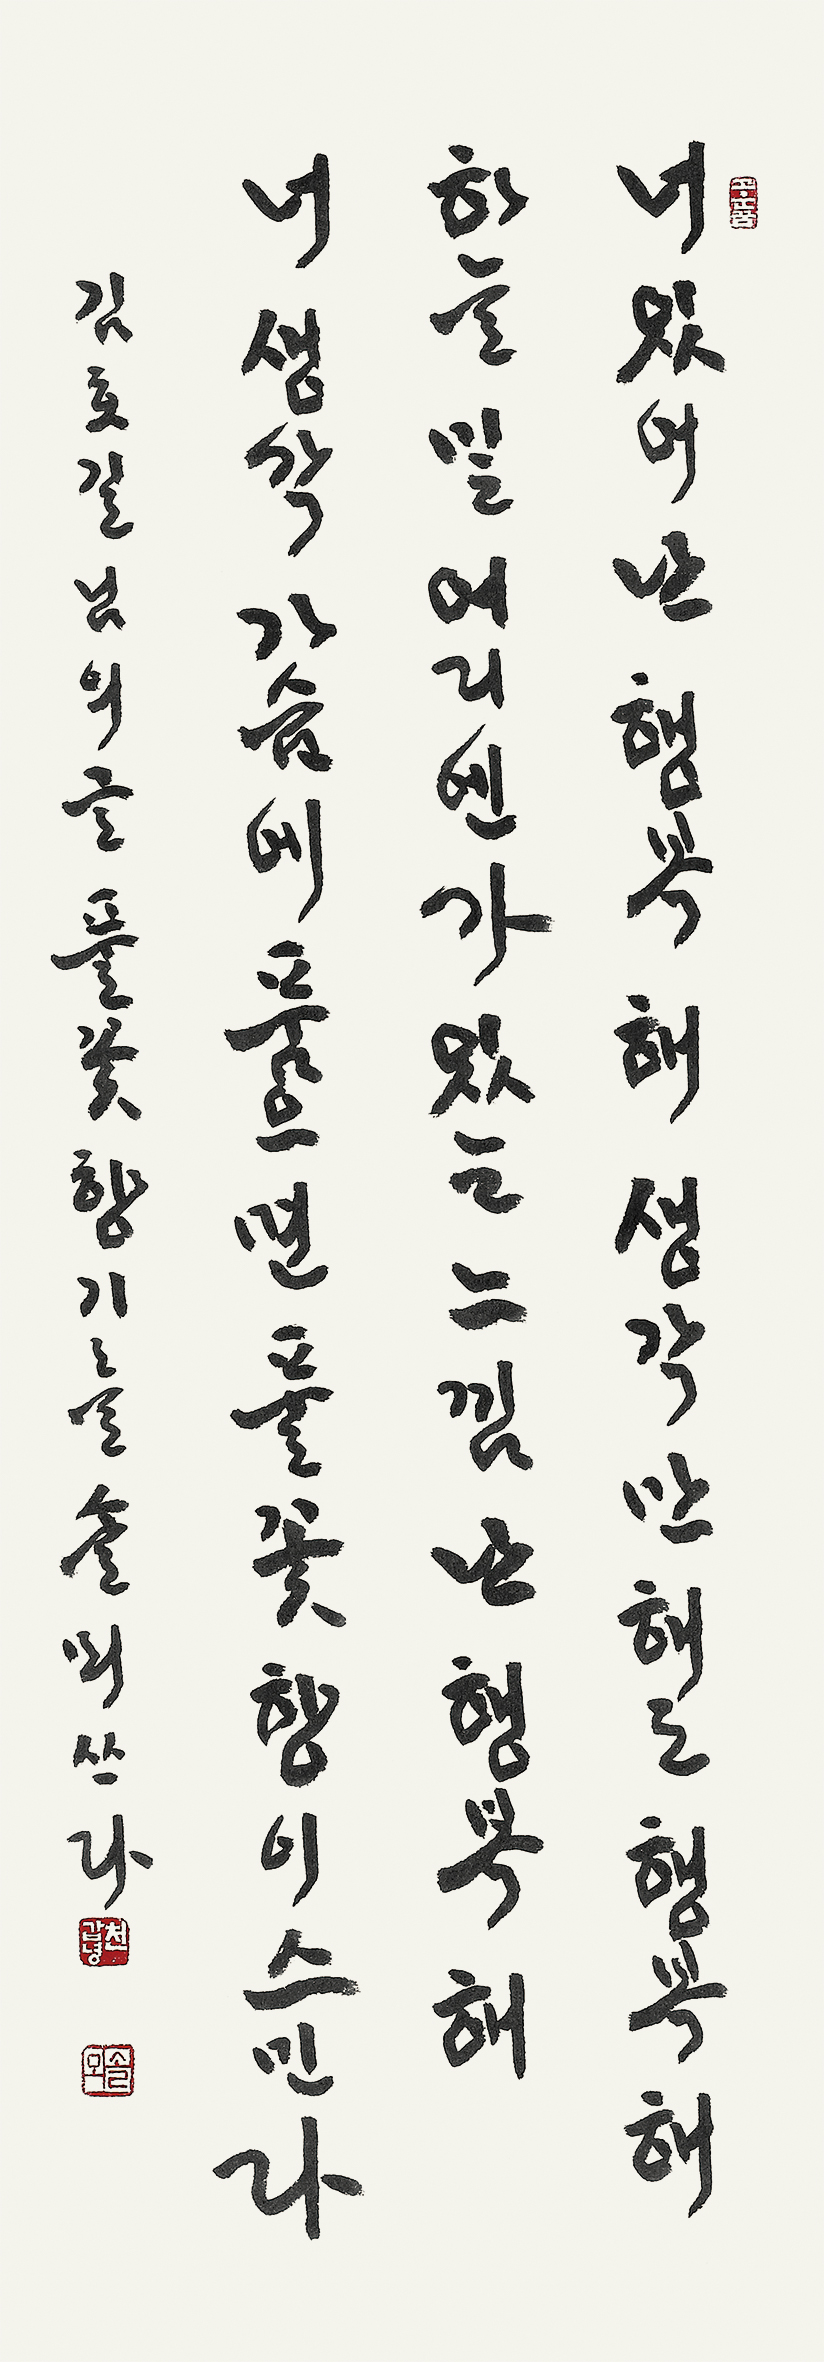 너 있어 난 행복해 생각만 해도 행복해
하늘 밑 어디엔가 있는 느낌 난 행복해
너 생각 가슴에 품으면 풀꽃향이 스민다
김호길님의 글 풀꽃향기를 솔뫼 쓰다
천갑녕
솔뫼